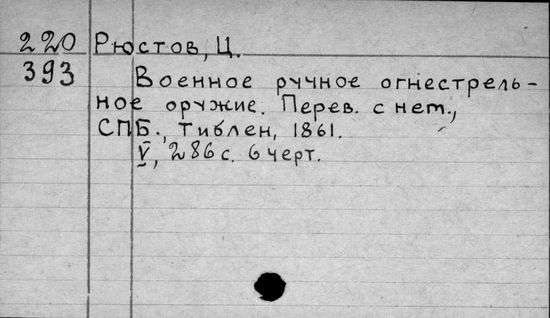 220 Рюстов, Ц.
393 Военное ручное огнестрель-
ное оружие. Перев. с нем.,
СПБ., Тиблен, 1861.
V, 286 с. 6 черт.